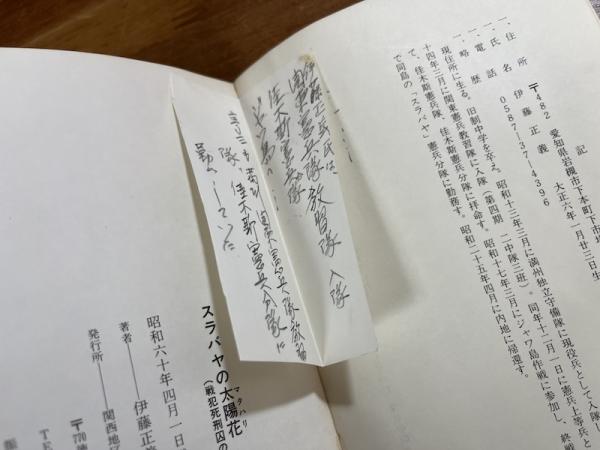 記
一、住所 〒482 愛知県岩槻市下本町下市場
一、氏名 伊藤正義 大正六年一月廿三日生
一、電話 0587-37-4396
一、略歴
現住所に生る。旧制中学を卒る。昭和十三年三月に満州独立守備隊に現役兵として入隊し
十四年三月に関東憲兵教習隊に入隊（第四期 二中隊三班）。同年十二月一日に憲兵上等兵と
て、佳木斯憲兵隊、佳木斯憲兵分隊に拝命す。昭和十七年三月にジャワ島作戦に参加し、終戦
で同島の「スラバヤ」憲兵分隊に勤務す。昭和二十五年四月に内地に帰還す。
伊藤正義氏は、
憲兵隊教習隊 入隊
佳木斯憲兵隊
隊、佳木斯憲兵分隊に
勤
していた
スラバヤの太陽花
マタハリ
（戦犯死刑囚の
昭和六十年四月一日
著者——伊藤正
発行所——関西地区
〒770